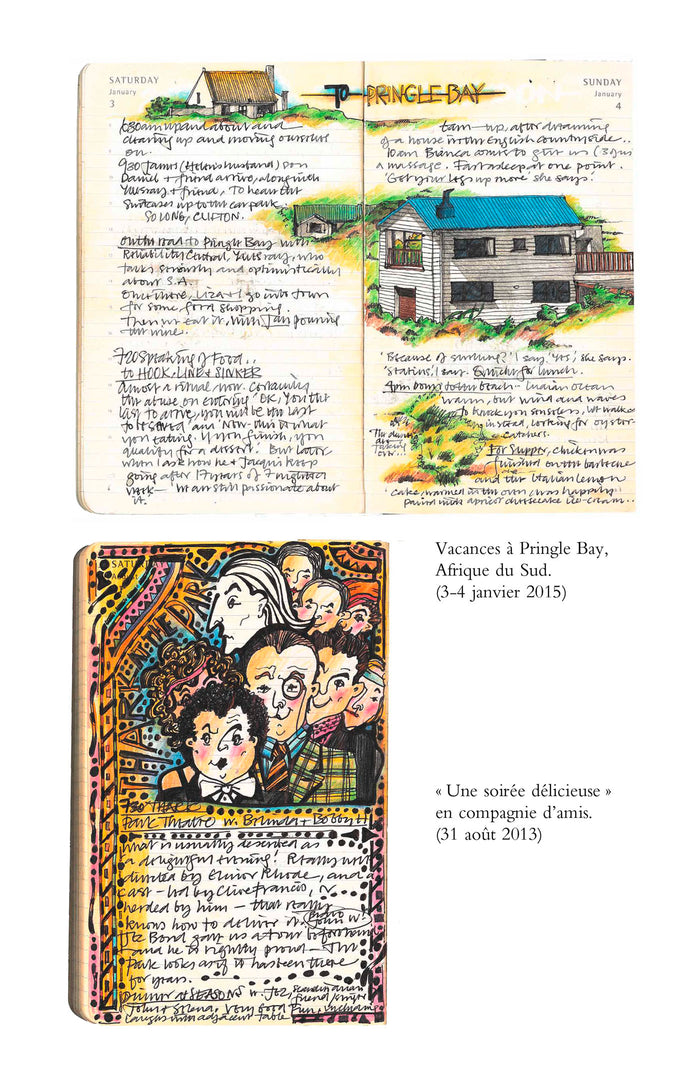 SATURDAY
January
3
TO PRINGLE BAY
SUNDAY
January
4
630am up and about and
clearing up and moving ourselves
on.
930 James (Helen's husband) son
Daniel + friend arrive, along with
Yusray + friend, To hear the
Suitcases up to the car park.
SO LONG, CLIFTON.
on the road to Pringle Bay with
Reliability Central, Yusray, who
talks seriously and optimistically
about S.A.
Once there, Liza + I go into town
for some food shopping.
Then we eat it, with Jan pouring
the wine.
720 Speaking of Food..
to HOOK, LINE & SINKER
Almost a ritual now. Consuming
the abuse on entering 'OK, you the
last to arrive, you will be the last
to be served' and 'Now this is what
you eating. If you finish, you
qualify for a dessert'. But later
when I ask how he + Jacqui keep
going after 17 years of 7 nights a
week - 'We are still passionate about
it.
6am - up, after dreaming
of a house in the English countryside..
10am Bianca comes to give us (3) a
massage. Fast asleep at one point.
'Get your legs up more' she says.
'Because of smoking?' I say. 'Yes', she says.
'Statins', I say. Quiche for lunch.
4pm Down to the beach - Indian ocean
warm, but wind and waves
to knock you senseless, we walk
instead, looking for oyster
catchers.
For Supper, chicken was
finished on the barbecue
and the Italian lemon
cake, warmed in the oven, was happily
paired with apricot cheesecake ice-cream..
Vacances à Pringle Bay,
Afrique du Sud.
(3-4 janvier 2015)
SATURDAY
August
PARK THEATRE
730
Park Theatre w. Belinda + Bobby H
What is usually described as
a delightful evening! Really well
directed by Elinor Rhode, and a
cast - led by Clive Francis, +
herded by him - that really
knows how to deliver it. Bravo
John W.
Jez Bond gave us a tour beforehand
and he is rightly proud - The
Park looks as if it has been there
for years.
Dinner at SEASONS w. Jez, Scandinavian
friend
John + Selena. Very good fun, including
laughs with adjacent table
« Une soirée délicieuse »
en compagnie d'amis.
(31 août 2013)